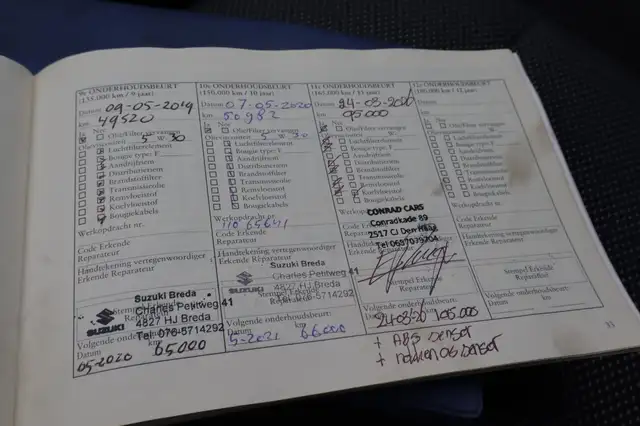 9e ONDERHOUDSBEURT
(135.000 km / 9 jaar)
Datum 09-05-2019
km 49520
Ja Nee
Olie/Filter vervangen
Olieviscositeit 5 W 30
Luchtfilterelement
Bougie type:
Aandrijfriem
Distributieriem
Brandstoffilter
Transmissieolie
Remvloeistof
Koelvloeistof
Bougiekabels
Werkopdracht nr.
Code Erkende
Reparateur
Handtekening vertegenwoordiger
Erkende Reparateur
SUZUKI
Suzuki Breda
Charles Petitweg 41
4827 HJ Breda
Tel 076-5714292
Volgende onderhoudsbeurt:
Datum km
05-2020 65.000
10e ONDERHOUDSBEURT
(150.000 km / 10 jaar)
Datum 07-05-2020
km 50982
Ja Nee
Olie/Filter vervangen
Olieviscositeit 5 W 30
Luchtfilterelement
Bougie type: F
Aandrijfriem
Distributieriem
Brandstoffilter
Transmissieolie
Remvloeistof
Koelvloeistof
Bougiekabels
Werkopdracht nr.
Code Erkende
Reparateur
Handtekening vertegenwoordiger
Erkende Reparateur
SUZUKI
Suzuki Breda
Charles Petitweg 41
4827 HJ Breda
Tel 076-5714292
Volgende onderhoudsbeurt:
Datum km
5-2021 66000
11e ONDERHOUDSBEURT
(165.000 km / 11 jaar)
Datum
km 95000
Ja Nee
Olie/Filter vervangen
Olieviscositeit
Luchtfilterelement
Bougie type: F
Aandrijfriem
Distributieriem
Brandstoffilter
Transmissieolie
Remvloeistof
Koelvloeistof
Bougiekabels
CONRAD CARS
Conradkade 89
2517 CJ Den Haag
Stempel Erkende
Reparateur
Volgende onderhoudsbeurt:
105.000
+ ABS sensor
+ nokkenas sensor
12e ONDERHOUDSBEURT
(180.000 km / 12 jaar)
Datum
km
Ja Nee
Olie/Filter vervangen
Olieviscositeit
Luchtfilterelement
Bougie type: F
Aandrijfriem
Distributieriem
Brandstoffilter
Transmissieolie
Remvloeistof
Koelvloeistof
Bougiekabels
Werkopdracht nr.
Code Erkende
Reparateur
Handtekening vertegenwoordiger
Erkende Reparateur
Stempel Erkende
Reparateur
Volgende onderhoudsbeurt:
Datum km